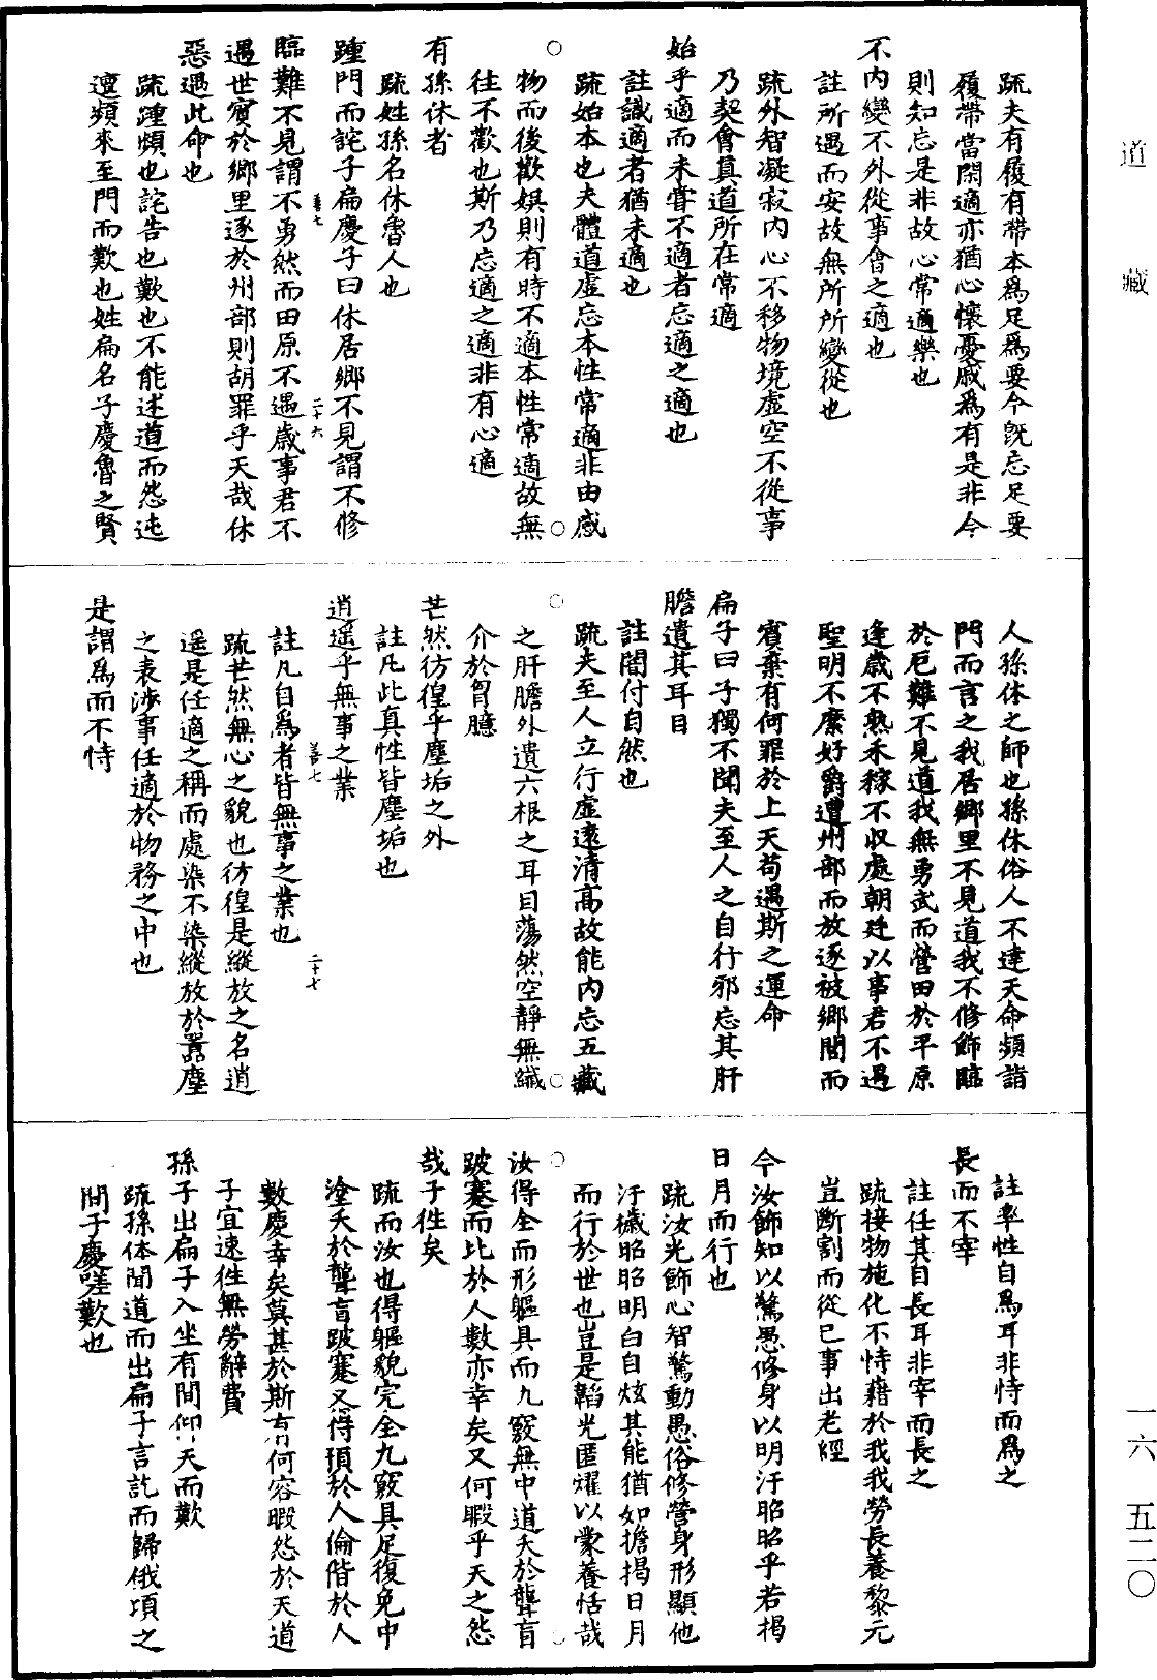 道藏
疏夫有履有帶本爲足爲要今既忘足要
履帶當閑適亦猶心懷憂戚爲有是非今
則知忘是非故心常適樂也
不內變不外從事會之適也
註所遇而安故無所變從也
疏外智凝寂內心不移物境虛空不從事
乃契會真道所在常適
始乎適而未嘗不適者忘適之適也
註識適者猶未適也
疏始本也夫體道虛忘本性常適非由感
物而後歡娛則有時不適本性常適故無
往不歡也斯乃忘適之適非有心適
有孫休者
疏姓孫名休魯人也
踵門而詫子扁慶子曰休居鄉不見謂不修
臨難不見謂不勇然而田原不遇歲事君不
善七 二十六
遇世賓於鄉里逐於州部則胡罪乎天哉休
惡遇此命也
疏踵頻也詫告也歎也不能述道而怨迍
邅頻來至門而歎也姓扁名子慶魯之賢
人孫休之師也孫休俗人不達天命頻詣
門而言之我居鄉里不見道我不修飾臨
於厄難不見道我無勇武而營田於平原
逢歲不熟禾稼不收處朝廷以事君不遇
聖明不縻好爵遭州部而放逐被鄉閭而
賓棄有何罪於上天苟遇斯之運命
扁子曰子獨不聞夫至人之自行邪忘其肝
膽遺其耳目
註闇付自然也
疏夫至人立行虛遠清高故能內忘五藏
之肝膽外遺六根之耳目蕩然空靜無纖
介於胷臆
芒然彷徨乎塵垢之外
註凡此真性皆塵垢也
逍遥乎無事之業
善七 二十七
註凡自爲者皆無事之業也
疏芒然無心之貌也彷徨是縱放之名逍
遥是任適之稱而處染不染縱放於囂塵
之表涉事任適於物務之中也
是謂爲而不恃
註率性自爲耳非恃而爲之
長而不宰
註任其自長耳非宰而長之
疏接物施化不恃藉於我我勞長養黎元
豈斷割而從己事出老經
今汝飾知以驚愚修身以明汙昭昭乎若揭
日月而行也
疏汝光飾心智驚動愚俗修營身形顯他
汙穢昭昭明白自炫其能猶如擔揭日月
而行於世也豈是韜光匿耀以蒙養恬哉
汝得全而形軀具而九竅無中道夭於聾盲
跛蹇而比於人數亦幸矣又何暇乎天之怨
哉子往矣
疏而汝也得軀貌完全九竅具足復免中
塗夭於聾盲跛蹇又得預於人倫偕於人
數慶幸矣莫甚於斯有何容暇怨於天道
子宜速往無勞辭費
孫子出扁子入坐有間仰天而歎
疏孫休聞道而出扁子言訖而歸俄頃之
間子慶嗟歎也
一六 五二〇